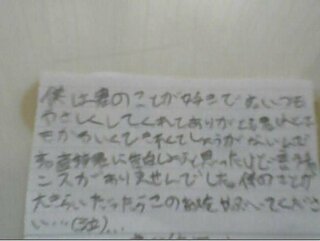 僕は君のことが好きです。いつも
やさしくしてくれてありがとう君はとて
もかわいくて それてしょうがないんで
君に告白しようと思ったけど言うチャ
ンスがありませんでした。僕のことが
大きらいだったらこの紙をやぶいてくださ
い…(泣)…